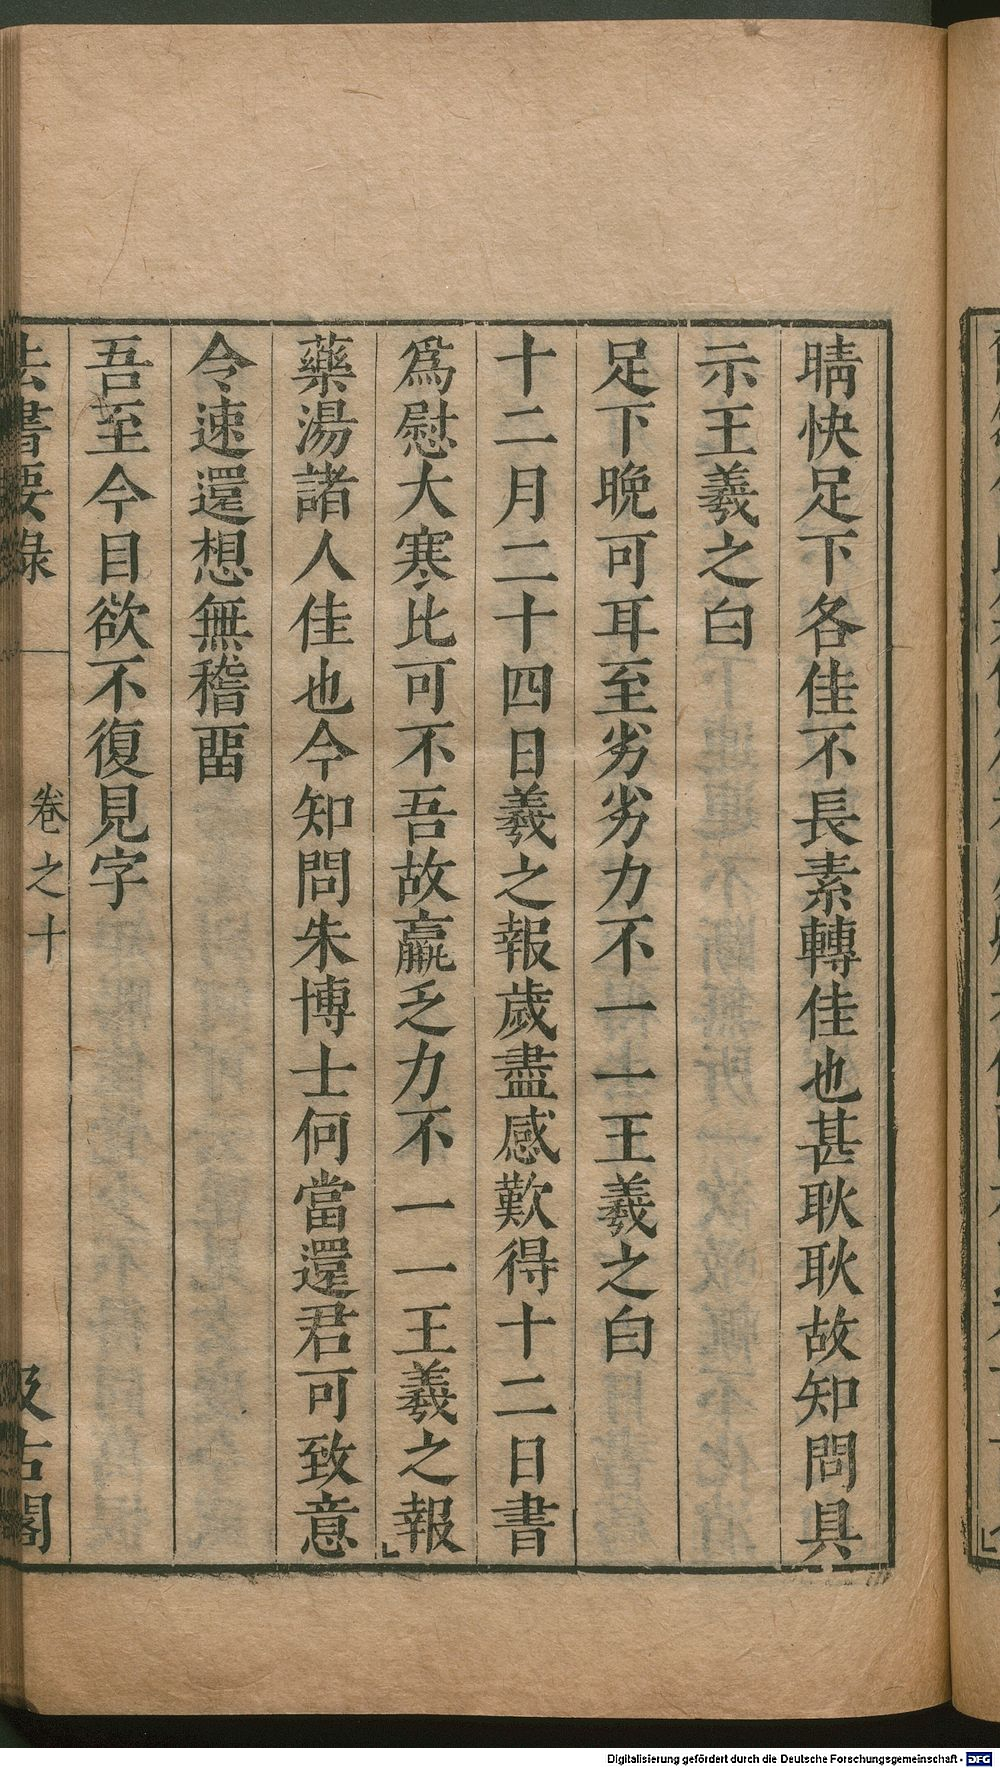 晴快足下各佳不長素轉佳也甚耿耿故知問具
示王羲之白
足下晚可耳至劣劣力不一一王羲之白
十二月二十四日羲之報歲盡感歎得十二日書
爲慰大寒比可不吾故羸乏力不一一王羲之報
藥湯諸人佳也今知問朱博士何當還君可致意
令速還想無稽畱
吾至今目欲不復見字
法書要錄 卷之十 汲古閣
Digitalisierung gefördert durch die Deutsche Forschungsgemeinschaft - DFG